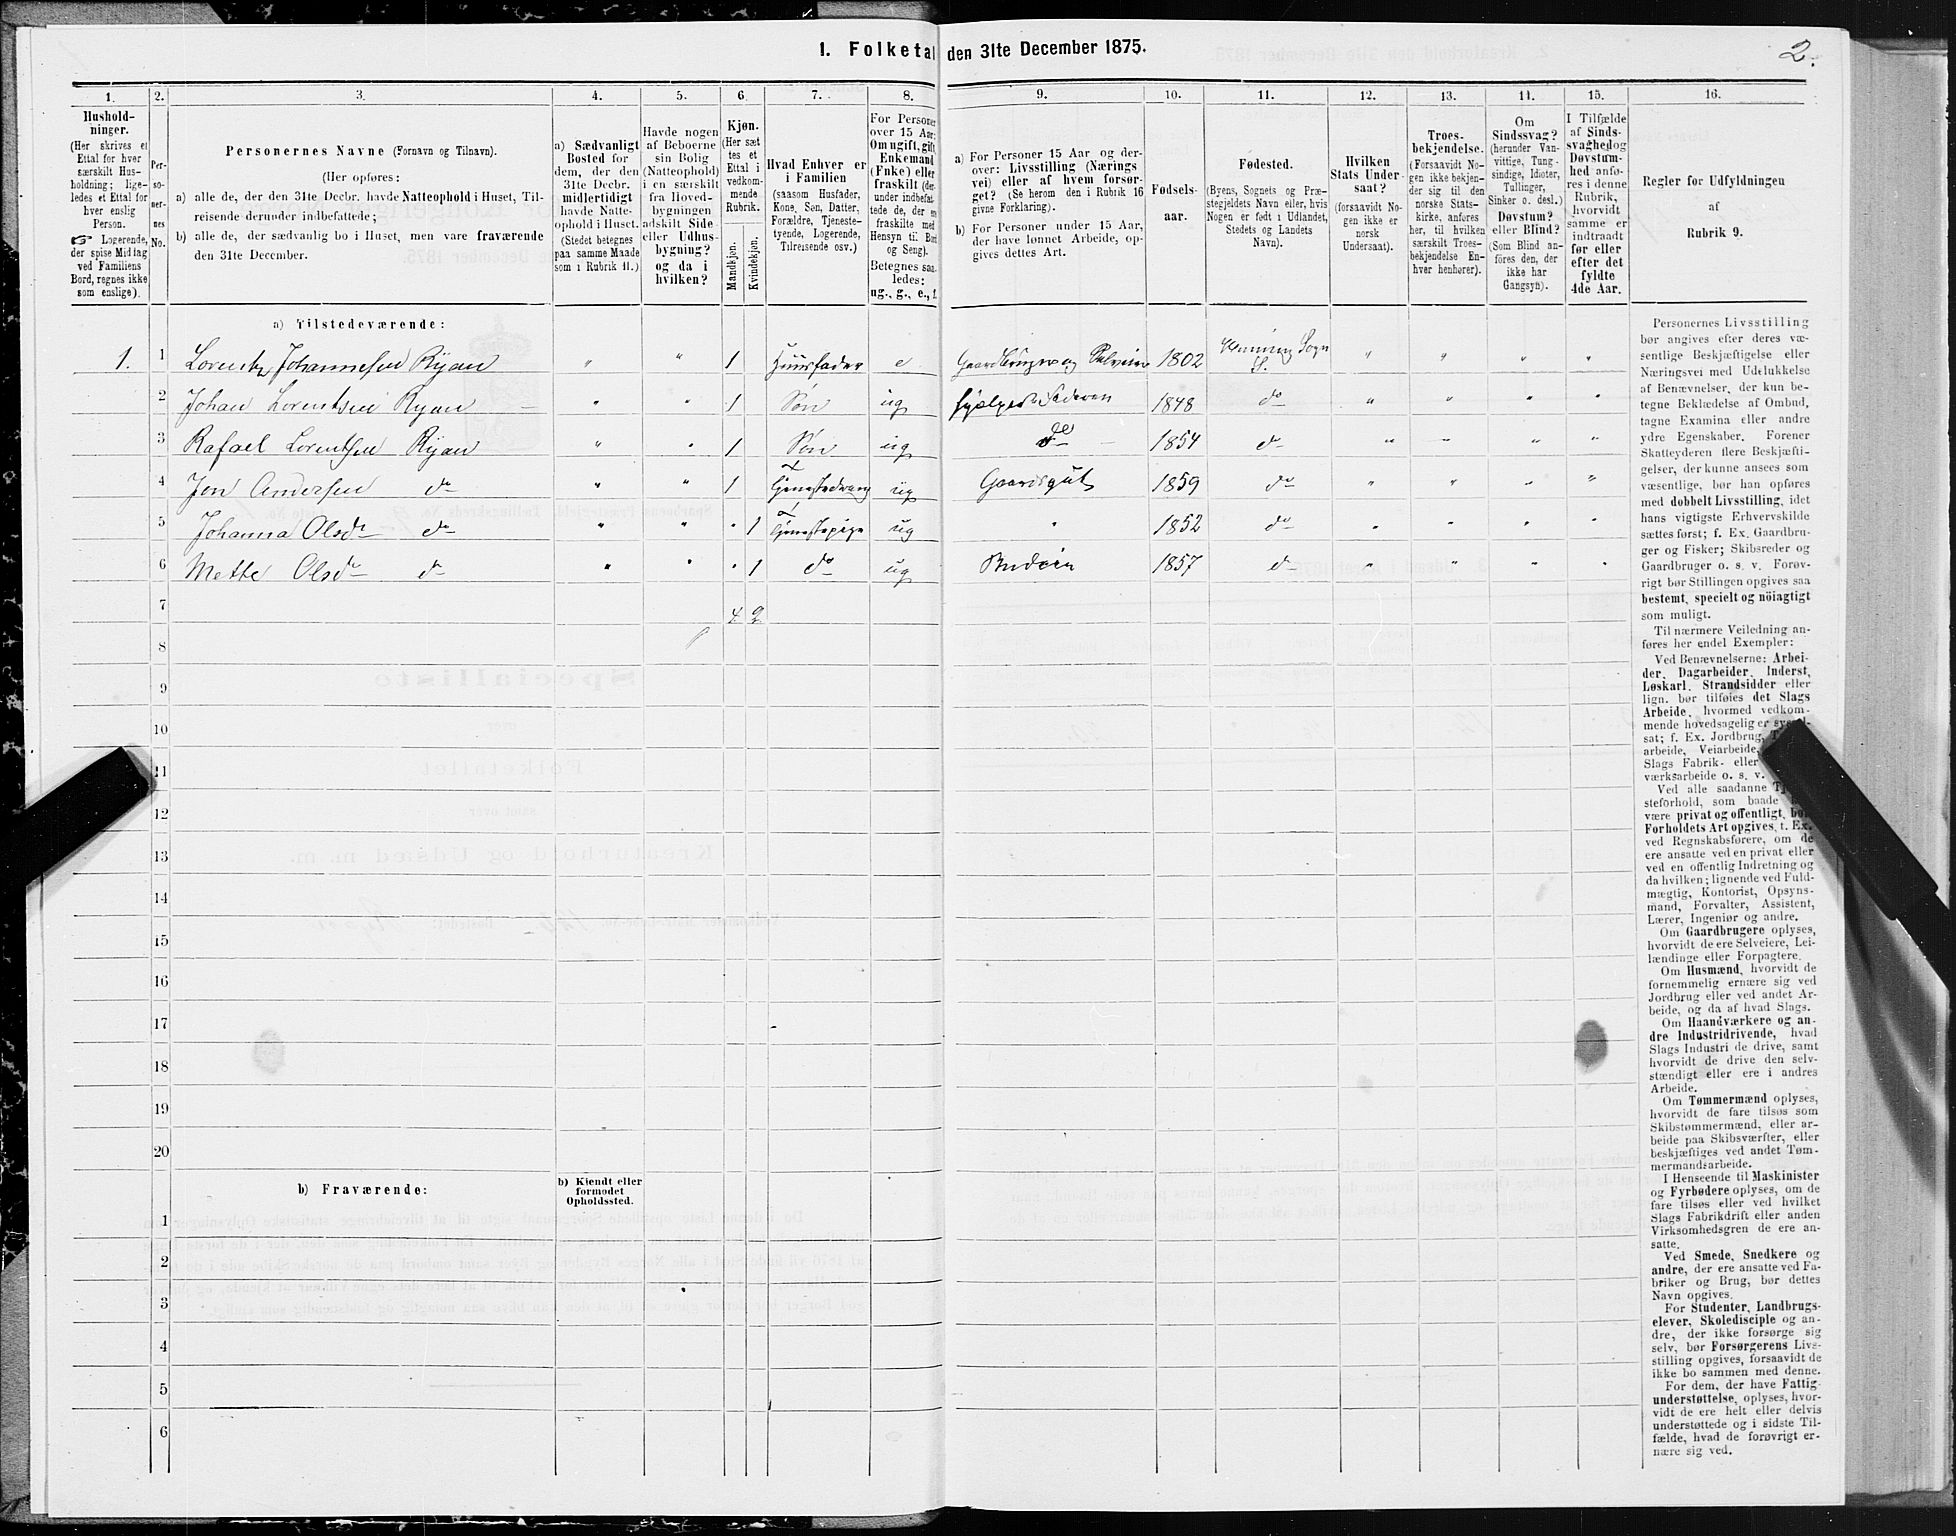 1. Folketal den 31te December 1875.
2.
1.
Hushold-
ninger.
(Her skrives et
Ettal for hver
særskilt Hus-
holdning; lige-
ledes et Ettal for
hver enslig
Person.
☞ Logerende,
der spise Middag
ved Familiens
Bord, regnes ikke
som enslige).
2.
Per-
so-
ner-
nes
No.
3.
Personernes Navne (Fornavn og Tilnavn).
(Her opføres:
a) alle de, der den 31te Decbr. havde Natteophold i Huset, Til-
reisende derunder indbefattede;
b) alle de, der sædvanlig bo i Huset, men vare fraværende
den 31te December.
4.
a) Sædvanligt
Bosted for
dem, der den
31te Decbr.
midlertidigt
havde Natte-
ophold i Huset.
(Stedet betegnes
paa samme Maade
som i Rubrik 11.)
5.
Havde nogen
af Beboerne
sin Bolig
(Natteophold)
i en særskilt
fra Hoved-
bygningen
adskilt Side-
eller Udhus-
bygning?
og da i
hvilken?
6.
Kjøn.
(Her sæt-
tes et
Ettal i
vedkom-
mende
Rubrik.
Mandkjøn.
Kvindekjøn.
7.
Hvad Enhver er
i Familien
(saasom Husfader,
Kone, Søn, Datter,
Forældre, Tjeneste-
tyende, Logerende,
Tilreisende osv.)
8.
For Personer
over 15 Aar:
Om ugift, gift,
Enkemand
(Enke) eller
fraskilt (der-
under indbefat-
tede de, der ere
fraskilte med
Hensyn til Bord
og Seng).
Betegnes saa-
ledes:
ug., g., e., f.
9.
a) For Personer 15 Aar og der-
over: Livsstilling (Nærings-
vei) eller af hvem forsør-
get? (Se herom den i Rubrik 16
givne Forklaring).
b) For Personer under 15 Aar,
der have lønnet Arbeide, op-
gives dettes Art.
10.
Fødsels-
aar.
11.
Fødested.
(Byens, Sognets og Præ-
stegjeldets Navn eller, hvis
Nogen er født i Udlandet,
Stedets og Landets
Navn).
12.
Hvilken
Stats Under-
saat?
(forsaavidt No-
gen ikke er
norsk
Undersaat).
13.
Troes-
bekjendelse.
(Forsaavidt No-
gen ikke bekjen-
der sig til den
norske Stats-
kirke, anføres
her, til hvilken
særskilt Troes-
bekjendelse En-
hver henhører).
14.
Om
Sindssvag?
(herunder Van-
vittige, Tung-
sindige, Idioter,
Tullinger,
Sinker o. desl.)
Døvstum?
eller Blind?
(Som Blind an-
føres den, der
ikke har
Gangsyn).
15.
I Tilfælde
af Sinds-
svaghed og
Døvstum-
hed anfø-
res i denne
Rubrik,
hvorvidt
samme er
indtraadt
før eller
efter det
fyldte
4de Aar.
16.
Regler for Udfyldningen
af
Rubrik 9.
a) Tilstedeværende:
1. 1 Lorentz Johannesen Ryan " " 1 Huusfader e Gaardbruger og Selveier 1802 Henning Sogn " " " "
2 Johan Lorentsen Ryan " " 1 Søn ug hjælper Faderen 1848 do " " " "
3 Rafael Lorentsen Ryan " " 1 Søn ug do 1854 do " " " "
4 Jon Andersen do " " 1 Tjenestedreng ug Gaardsgut 1859 do " " " "
5 Johanna Olsdr do " " " 1 Tjenestepige ug " 1852 do " " " "
6 Mette Olsdr do " " " 1 do ug Budeie 1857 do " " " "
7 4 2
8
9
10
11
12
13
14
15
16
17
18
19
20
b) Fraværende:
b) Kjendt eller
formodet
Opholdssted.
1
2
3
4
5
6
Personernes Livsstilling
bør angives efter deres væ-
sentlige Beskjæftigelse eller
Næringsvei med Udelukkelse
af Benævnelser, der kun be-
tegne Beklædelse af Ombud,
tagne Examina eller andre
ydre Egenskaber. Forener
Skatteyderen flere Beskjæfti-
gelser, der kunne ansees som
væsentlige, bør han opføres
med dobbelt Livsstilling, idet
hans vigtigste Erhvervskilde
sættes først; f. Ex. Gaardbru-
ger og Fisker; Skibsreder og
Gaardbruger o. s. v. Forøv-
rigt bør Stillingen opgives saa
bestemt, specielt og nöiagtigt
som muligt.
Til nærmere Veiledning an-
føres her endel Exempler:
Ved Benævnelserne: Arbei-
der, Dagarbeider, Inderst,
Løskarl, Strandsidder eller
lign. bør tilføies det Slags
Arbeide, hvormed vedkom-
mende hovedsagelig er syssel-
sat; f. Ex. Jordbrug,
arbeide, Veiarbeide,
Slags Fabrik- eller
værksarbeide o. s. v.
Ved alle saadanne Tje-
steforhold, som baade
være privat og offentligt, bør
Forholdets Art opgives, t. Ex.
ved Regnskabsførere, om de
ere ansatte ved en privat eller
ved en offentlig Indretning og
da hvilken; lignende ved Fuld-
mægtig, Kontorist, Opsyns-
mand, Forvalter, Assistent,
Lærer, Ingeniør og andre.
Om Gaardbrugere oplyses,
hvorvidt de ere Selveiere, Lei-
lændinge eller Forpagtere.
Om Husmænd, hvorvidt de
fornemmelig ernære sig ved
Jordbrug eller ved andet Ar-
beide, og da af hvad Slags.
Om Haandværkere og an-
dre Industridrivende, hvad
Slags Industri de drive, samt
hvorvidt de drive den selv-
stændigt eller ere i andres
Arbeide.
Om Tømmermænd oplyses,
hvorvidt de fare tilsøs som
Skibstømmermænd, eller ar-
beide paa Skibsværfter, eller
beskjæftiges ved andet Tøm-
mermandsarbeide.
I Henseende til Maskinister
og Fyrbødere oplyses, om de
fare tilsøs eller ved hvilket
Slags Fabrikdrift eller anden
Virksomhedsgren de ere an-
satte.
Ved Smede, Snedkere og
andre, der ere ansatte ved Fa-
briker og Brug, bør dettes
Navn opgives.
For Studenter, Landbrugs-
elever, Skoledisciple og an-
dre, der ikke forsørge sig
selv, bør Forsørgerens Livs-
stilling opgives, forsaavidt de
ikke bo sammen med denne.
For dem, der have Fattig-
understøttelse, oplyses, hvor-
vidt de ere helt eller delvis
understøttede og i sidste Til-
fælde, hvad de forøvrigt er-
nære sig ved.